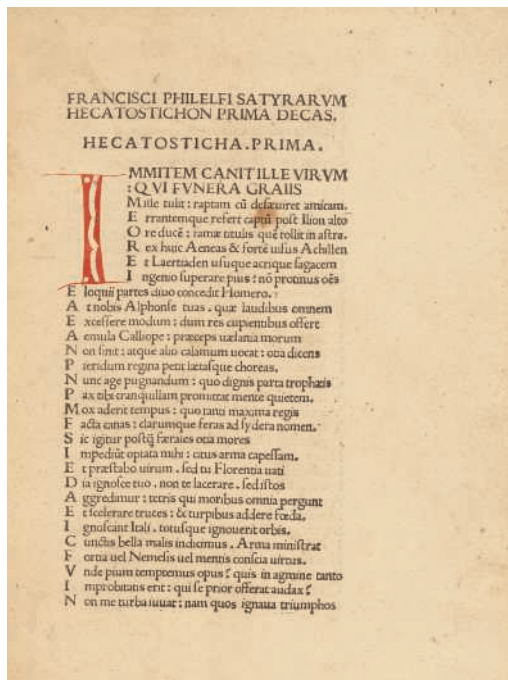 FRANCISCI PHILELFI SATYRARVM
HECATOSTICHON PRIMA DECAS.
HECATOSTICHA.PRIMA.
IMMITEM CANIT ILLE VIRVM
: QVI FVNERA GRAIIS
Mille tulit : raptam cū desæuiret amicam.
E rrantemque refert captū post Ilion alto
O re ducē : famæ titulis quē tollit in astra.
R ex huic Aeneas & forte uisus Achillen
E t Laertiaden usuque acrique sagacem
I ngenio superare pius : nō protinus oēs
E loquii partes diuo concedit Homero.
A t nobis Alphonse tuas . quæ laudibus omnem
E xcessere modum : dum res cupientibus offert
A emula Calliope : præceps uæsania morum
N on sinit : atque alio calamum uocat : otia dicens
P ieridum regina petit lætasque choreas.
N unc age pugnandum : quo dignis parta trophæis
P ax tibi tranquillam promittat mente quietem.
M ox aderit tempus : quo tanti maxima regis
F acta canas : clarumque feras ad sydera nomen.
S ic igitur postq̄ færaies otia mores
I mpediūt optata mihi : citus arma capessam.
E t præstabo uirum . sed tu Florentia uati
D ia ignosce tuo . non te lacerare . sed istos
A ggredimur : tetris qui moribus omnia pergunt
E t scelerare truces : & turpibus addere fœda.
I gnoscant Itali . totusque ignouerit orbis.
C unctis bella malis indicimus . Arma ministrat
F ortia uel Nemesis uel mentis conscia uirtus.
V nde pium temptemus opus? quis in agmine tanto
I mprobitatis erit : qui se prior offerat audax?
N on me turba iuuat : nam quos ignaua triumphos